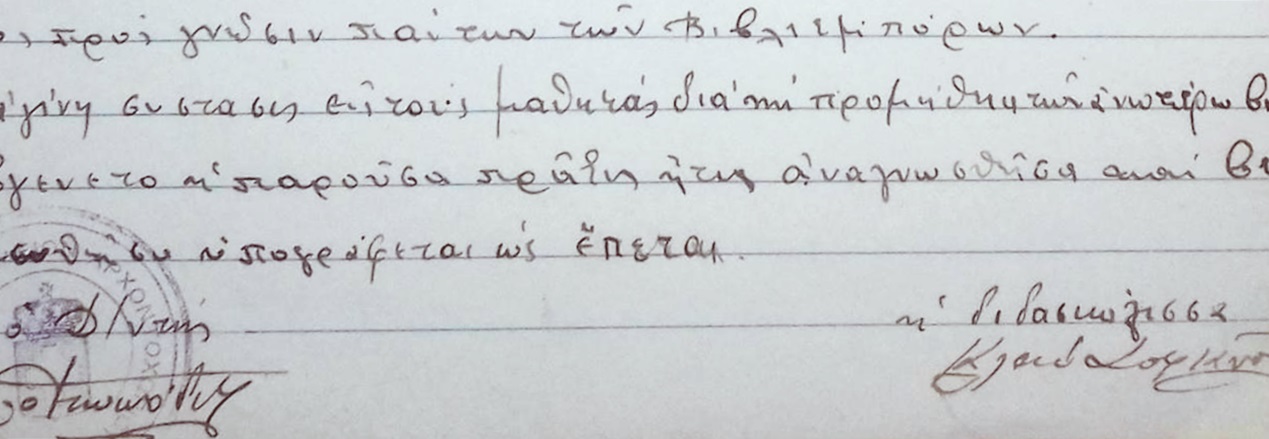 πρὸς γνῶσιν καὶ των τῶν Βιβλιεμπόρων.
γίνῃ συστασις εἰς τοὺς μαθητὰς διὰ τὴν προμήθειαν τῶν ἀνωτέρω
ἐγενετο ἡ παροῦσα πρᾶξις ἥτις ἀναγνωσθεῖσα καὶ
ὑπογράφεται ὡς ἕπεται.
ὁ Δ/ντής
ἡ διδασκάλισσα